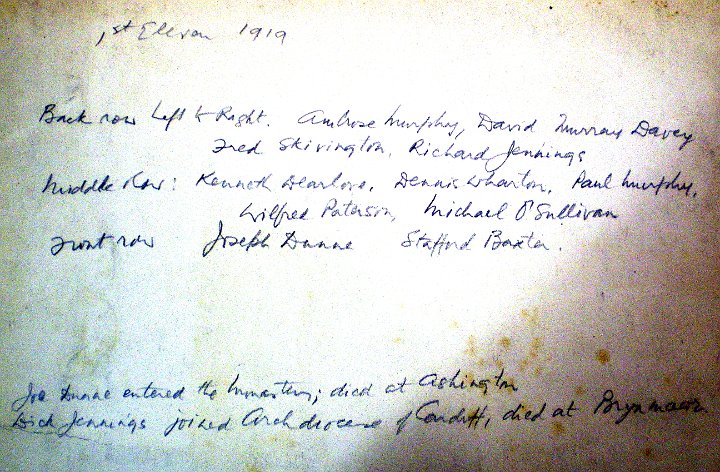 1st Eleven 1919
Back row left to Right. Ambrose Murphy, David Murray Davey
Fred Skivington, Richard Jennings
Middle Row: Kenneth Dearlove, Dennis Wharton, Paul Murphy,
Wilfred Paterson, Michael O'Sullivan
Front row Joseph Dunne Stafford Baxter.
Joe Dunne entered the Monastery; died at Ashington
Dick Jennings joined Archdiocese of Cardiff, died at Brynmawr